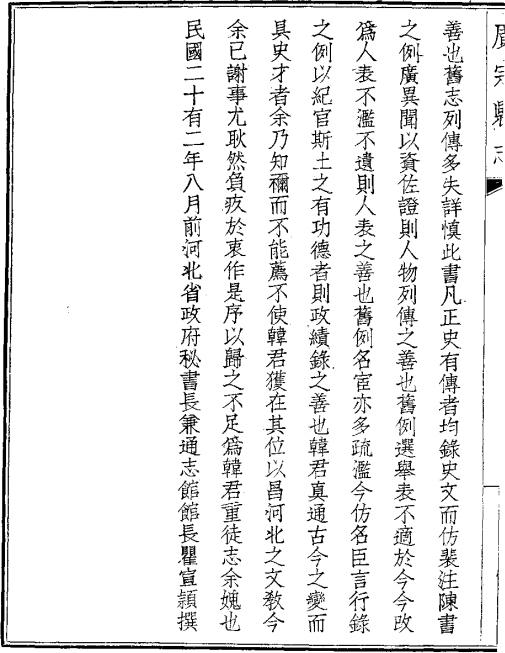 廣宗縣志
善也舊志列傳多失詳慎此書凡正史有傳者均錄史文而仿裴注陳書
之例廣異聞以資佐證則人物列傳之善也舊例選舉表不適於今今改
爲人表不濫不遺則人表之善也舊例名宦亦多疏濫今仿名臣言行錄
之例以紀官斯土之有功德者則政績錄之善也韓君真通古今之變而
具史才者余乃知禰而不能薦不使韓君獲在其位以昌河北之文教今
余已謝事尤耿然負疚於衷作是序以歸之不足爲韓君重徒志余媿也
民國二十有二年八月前河北省政府秘書長兼通志館館長瞿宣頴撰